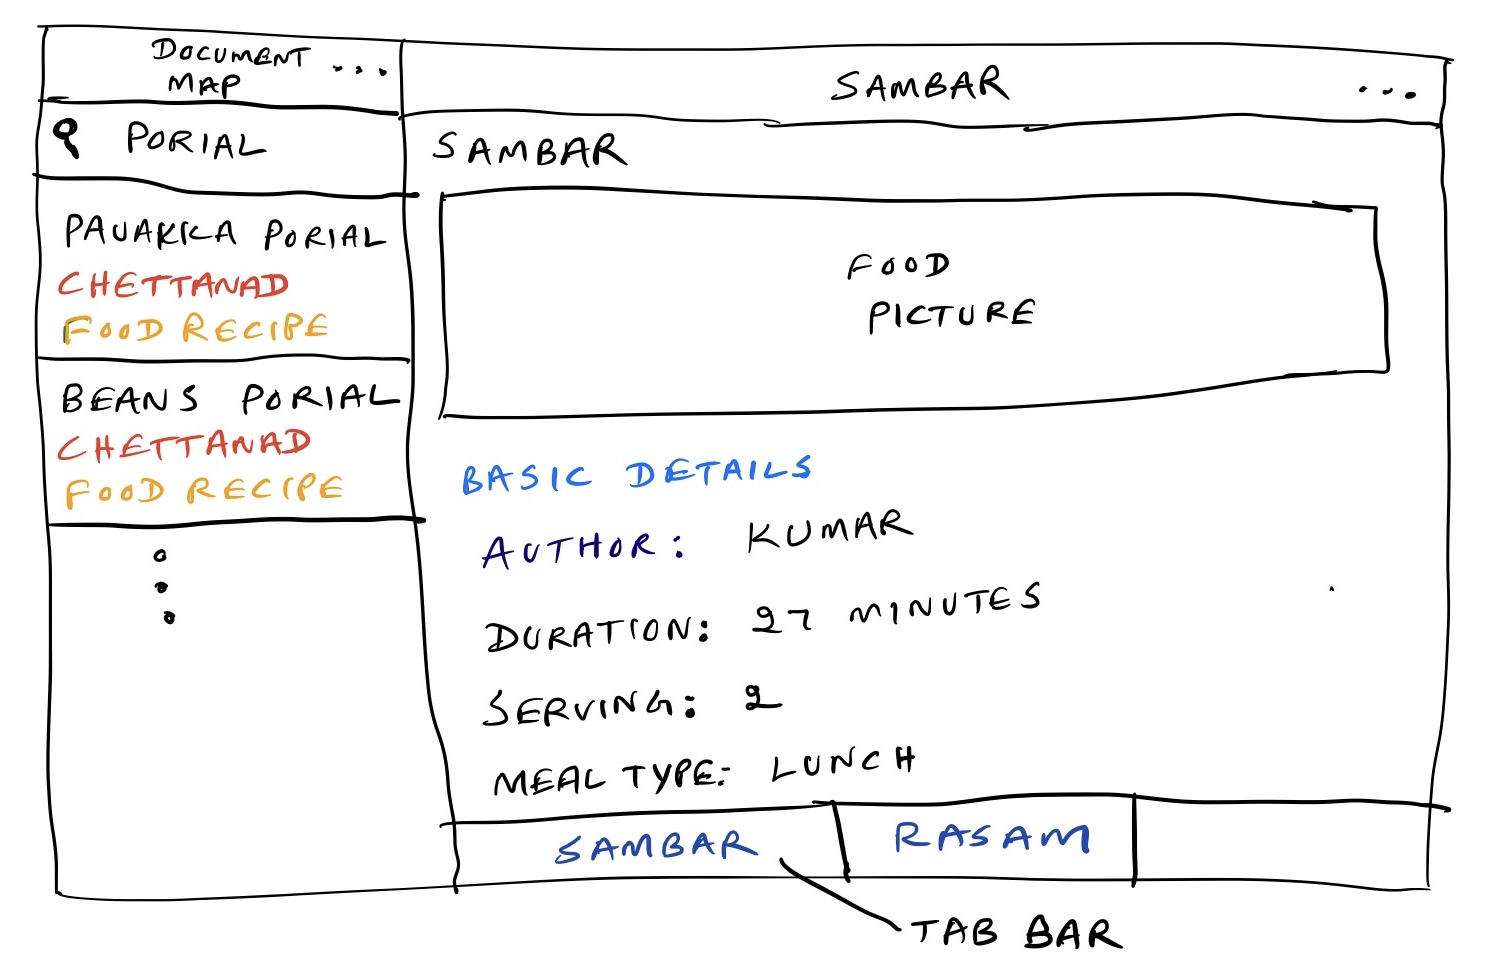 DOCUMENT
MAP
...
PORIAL
PAVAKKA PORIAL
CHETTANAD
FOOD RECIPE
BEANS PORIAL
CHETTANAD
FOOD RECIPE
SAMBAR
...
SAMBAR
FOOD
PICTURE
BASIC DETAILS
AUTHOR: KUMAR
DURATION: 27 MINUTES
SERVING: 2
MEAL TYPE: LUNCH
SAMBAR
RASAM
TAB BAR